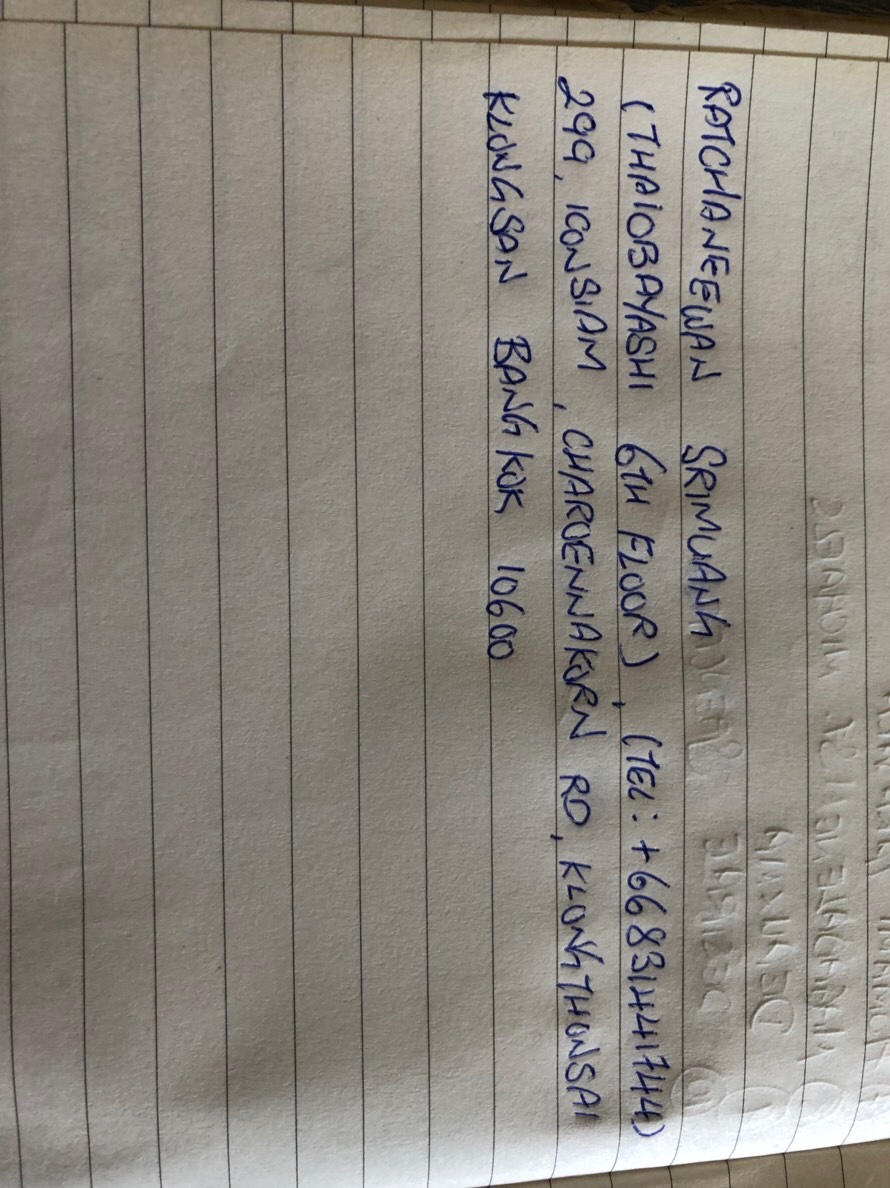 RATCHANEEWAN SRIMUANG
(THAIOBAYASHI 6TH FLOOR), (TEL: +66831441744)
299, ICONSIAM, CHAROENNAKORN RD, KLONGTHONSAI
KLONGSAN BANGKOK 10600